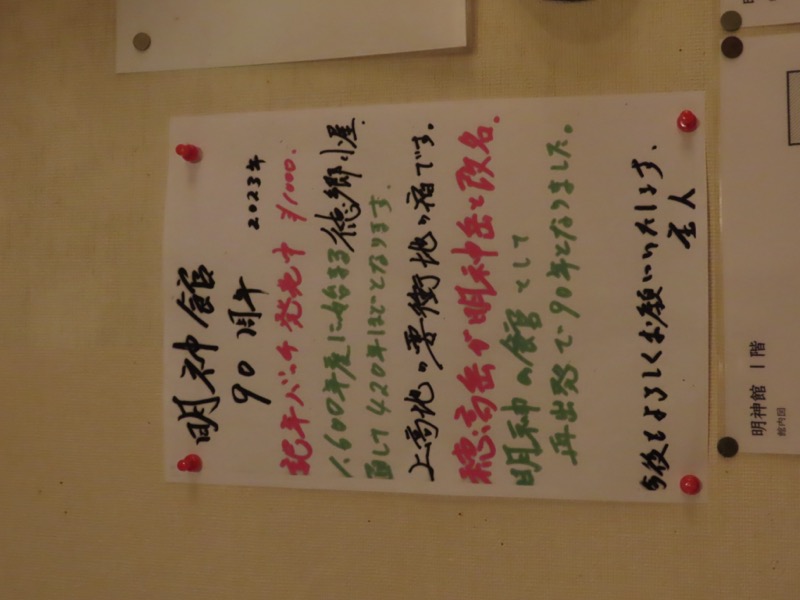 明神館
90周年
2023年
記年バッチ発売中 ¥1000.
1,600年度に始まる徳郷小屋.
面して420年ほどとなります.
上高地の要衝地の宿です。
穂高岳が明神岳と改名.
明神の館として
再出発で90年となりました。
今後もよろしくお願いいたします、
主人
明神館 1階
館内図